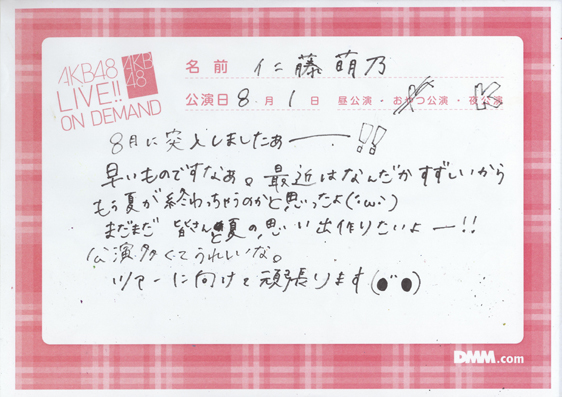 AKB48
LIVE!!
ON DEMAND
AKB
48
名前 仁藤萌乃
公演日 8月1日 昼公演・おやつ公演・夜公演
8月に突入しましたぁー!!
早いものですなぁ。最近はなんだかすずしいから
もう夏が終わっちゃうのかと思ったよ(´・ω・`)
まだまだ 皆さんと夏の思い出作りたいよー!!
公演多くてうれしいな。
ツアーに向けて頑張ります(●゛●)
DMM.com